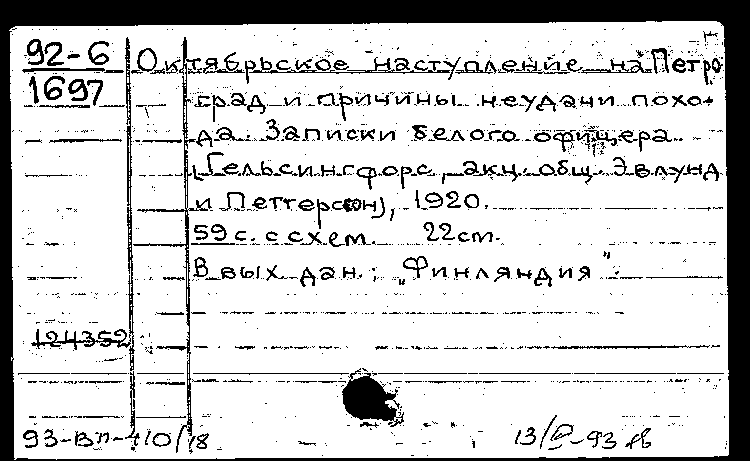 92-6
1697
Октябрьское наступление на Петро
град и причины неудачи похо-
да. Записки белого офицера.
(Гельсингфорс, акц. общ. Эвлунд
и Петтерсон), 1920.
59 с. с схем. 22 см.
В вых. дан.: „Финляндия".
124352
93-Вп-410/18